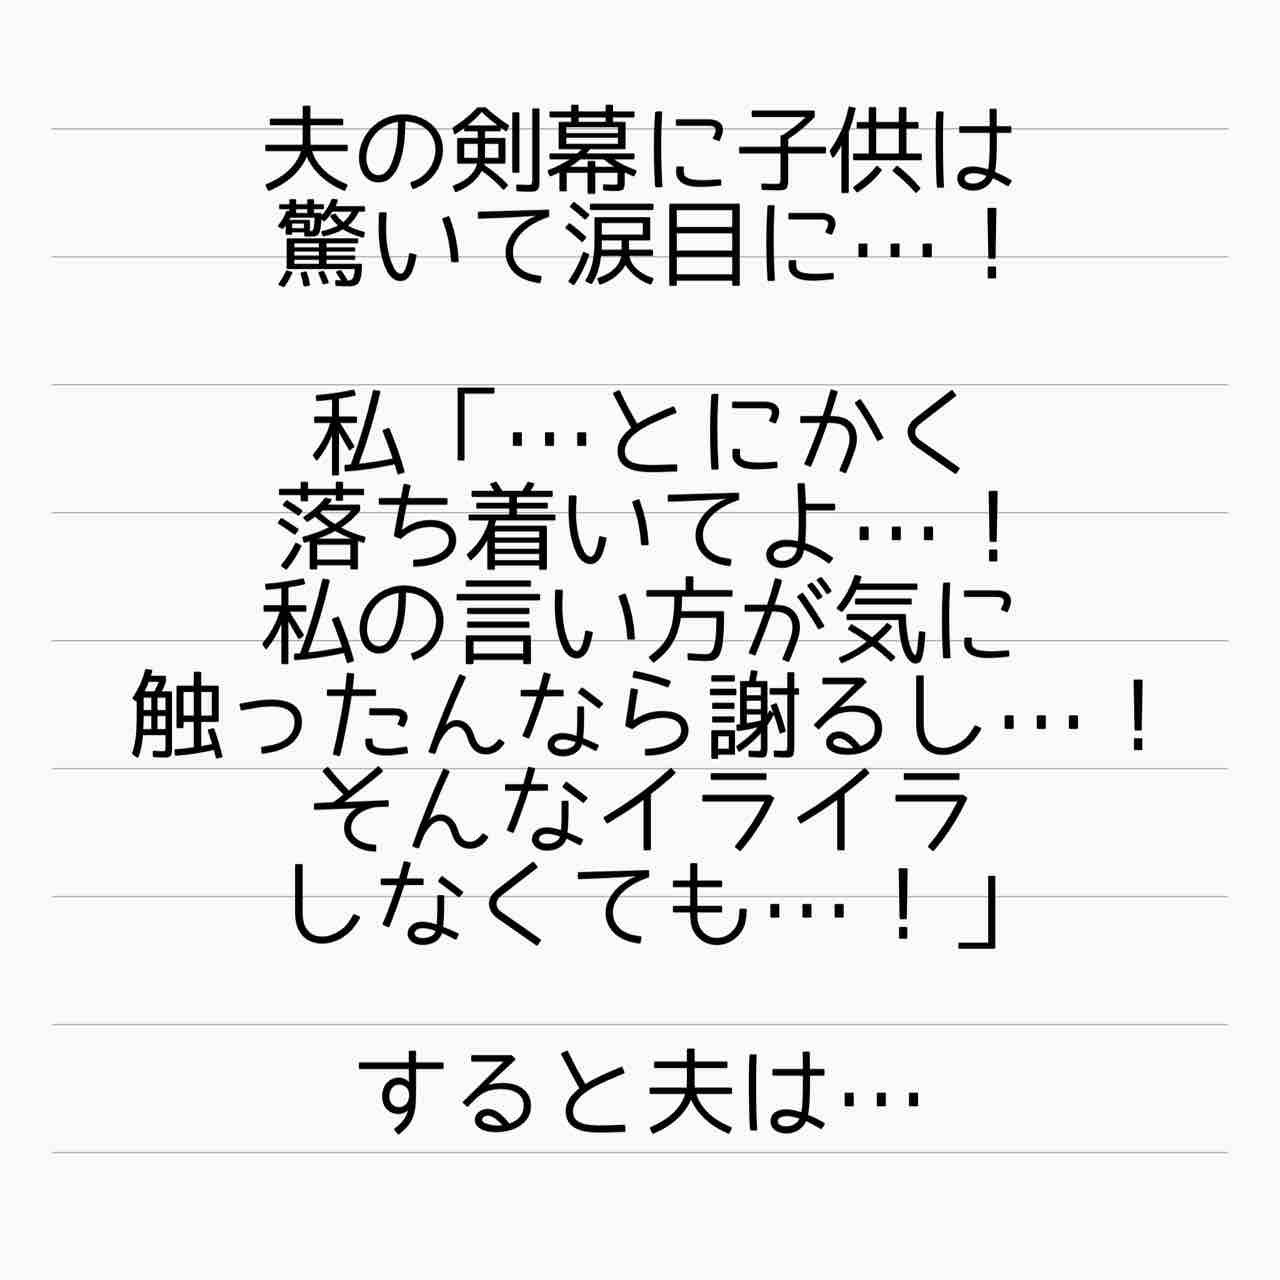 夫の剣幕に子供は
驚いて涙目に…！
私「…とにかく
落ち着いてよ…！
私の言い方が気に
触ったんなら謝るし…！
そんなイライラ
しなくても…！」
すると夫は…